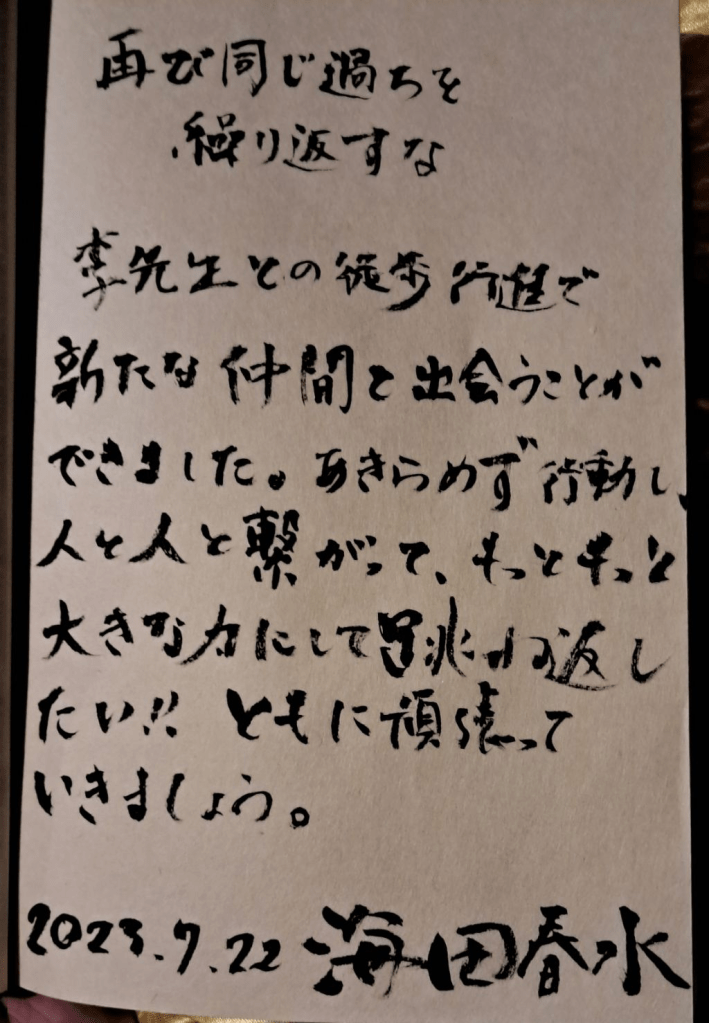 再び同じ過ちを
繰り返すな
李先生との徒歩行進で
新たな仲間と出会うことが
できました。あきらめず行動し、
人と人と繋がって、もっともっと
大きな力にして跳ね返し
たい!! ともに頑張って
いきましょう。
2023.7.22 海田春水